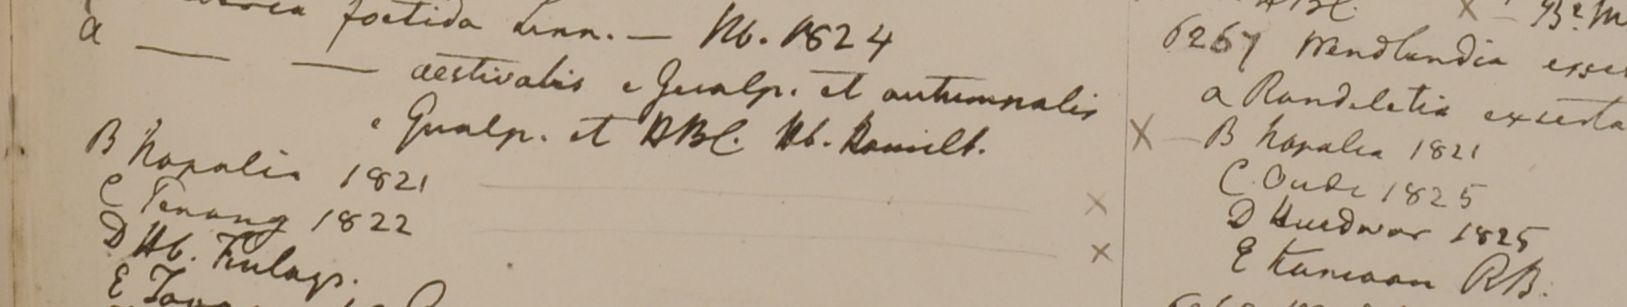 foetida Linn. — Hb. 1824
a — — aestivalis e Gualp. et autumnalis
e Gualp. et HBC. Hb. Hamilt.
B Napalia 1821 x
C Penang 1822 x
D Hb. Finlays.
E
HBC. x —
6267 Wendlandia exser
a Rondeletia exserta
X — B Napalia 1821
C Oude 1825
D Hurdwar 1825
E Kamaon RB.